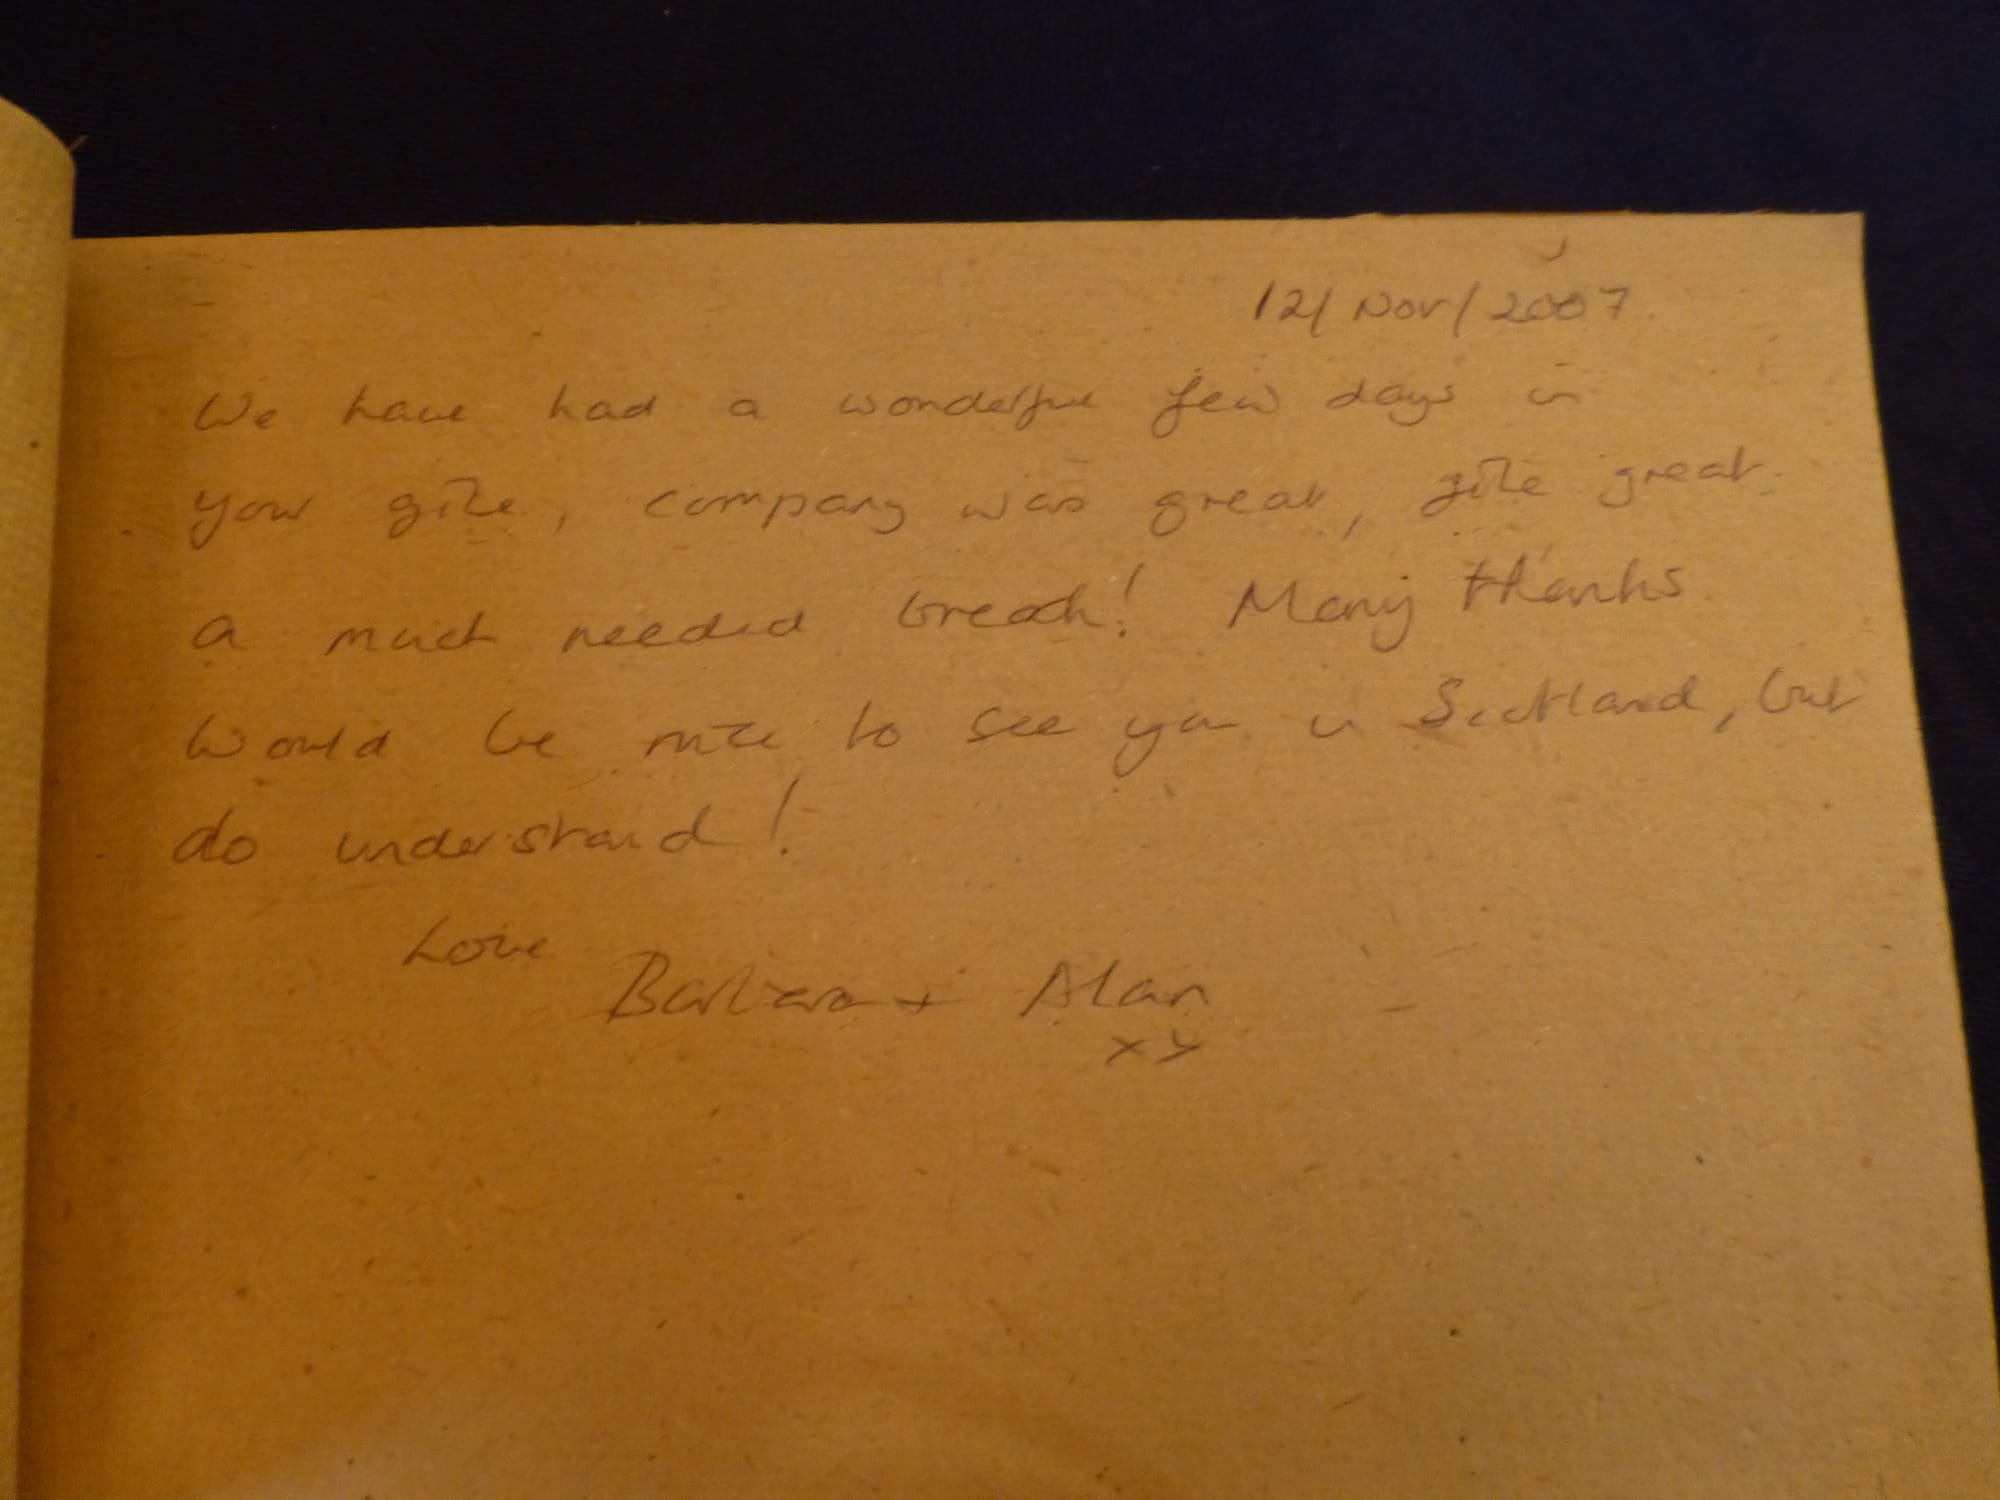 12/Nov/2007.
We have had a wonderful few days in
your gîte, company was great, gîte great.
a much needed break! Many thanks.
Would be nice to see you in Scotland, but
do understand!
Love
Barbara + Alan
xx